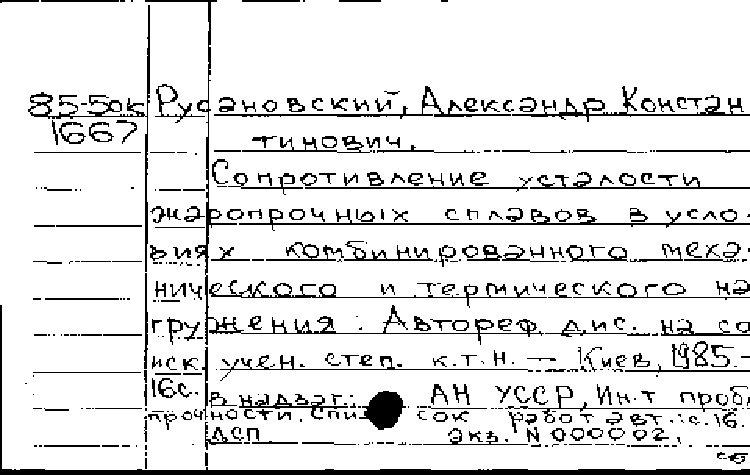 85-5ок Русановский, Александр Констан
1667 тинович.
Сопротивление усталости
жаропрочных сплавов в усло-
виях комбинированного меха-
нического и термического на
гружения: Автореф. дис. на со
иск. учен. степ. к.т.н. — Киев, 1985.-
16с.
В надзаг.: АН УССР, Ин-т пробл
прочности. Список работ авт.: с.16.
ДСП. Экз. N 000002.